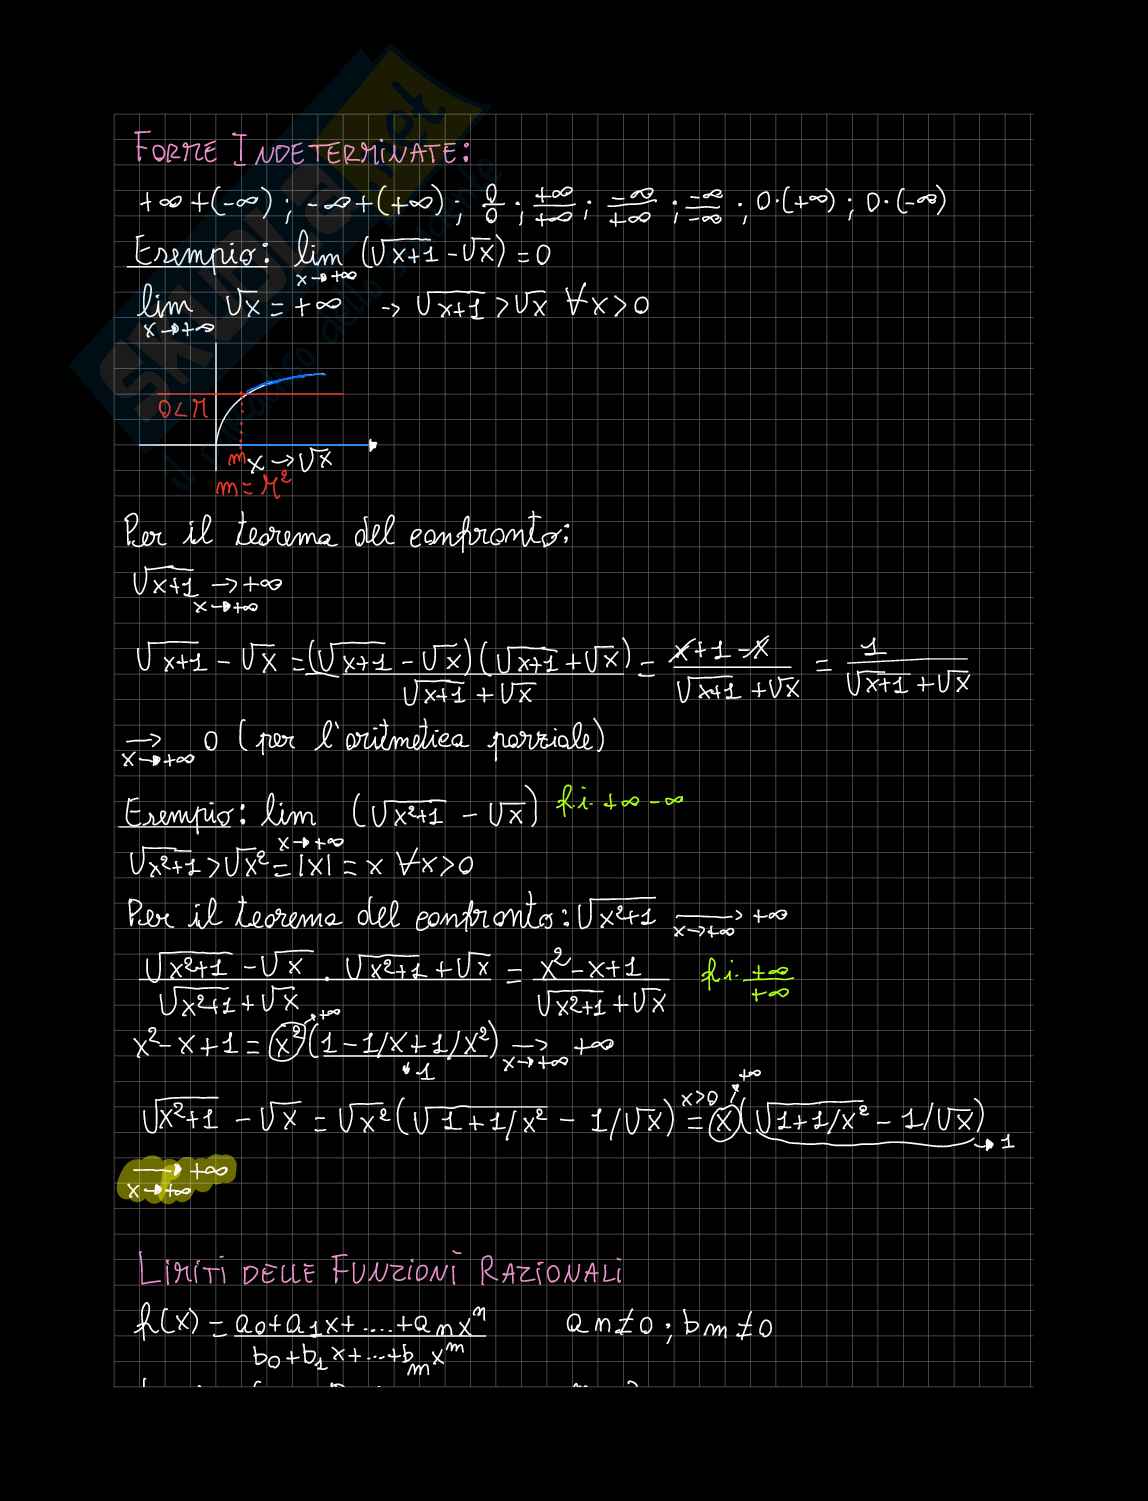 FORME INDETERMINATE:
+∞+(-∞) ; -∞+(+∞) ; 0/0 ; +∞/+∞ ; -∞/+∞ ; -∞/-∞ ; 0·(+∞) ; 0·(-∞)
Esempio: lim x→+∞ (√x+1 - √x) = 0
lim x→+∞ √x = +∞ → √x+1 > √x ∀x>0
0<M
m x→√x
m = M²
Per il teorema del confronto:
√x+1 → x→+∞ +∞
√x+1 - √x = (√x+1 - √x)(√x+1 + √x) / √x+1 + √x = x+1-x / √x+1 + √x = 1 / √x+1 + √x
→ x→+∞ 0 (per l'aritmetica parziale)
Esempio: lim x→+∞ (√x²+1 - √x) f.i. +∞-∞
√x²+1 > √x² = |x| = x ∀x>0
Per il teorema del confronto: √x²+1 → x→+∞ +∞
√x²+1 - √x / √x²+1 + √x · √x²+1 + √x = x²-x+1 / √x²+1 + √x f.i. +∞/+∞
x²-x+1 = x² →+∞ (1-1/x+1/x²) →1 → x→+∞ +∞
√x²+1 - √x = √x² (√1+1/x² - 1/√x) = x>0 x →+∞ (√1+1/x² - 1/√x) →1
→ x→+∞ +∞
LIMITI DELLE FUNZIONI RAZIONALI
f(x) = a0+a1x+....+anxⁿ / b0+b1x+...+bmxᵐ an≠0 ; bm≠0